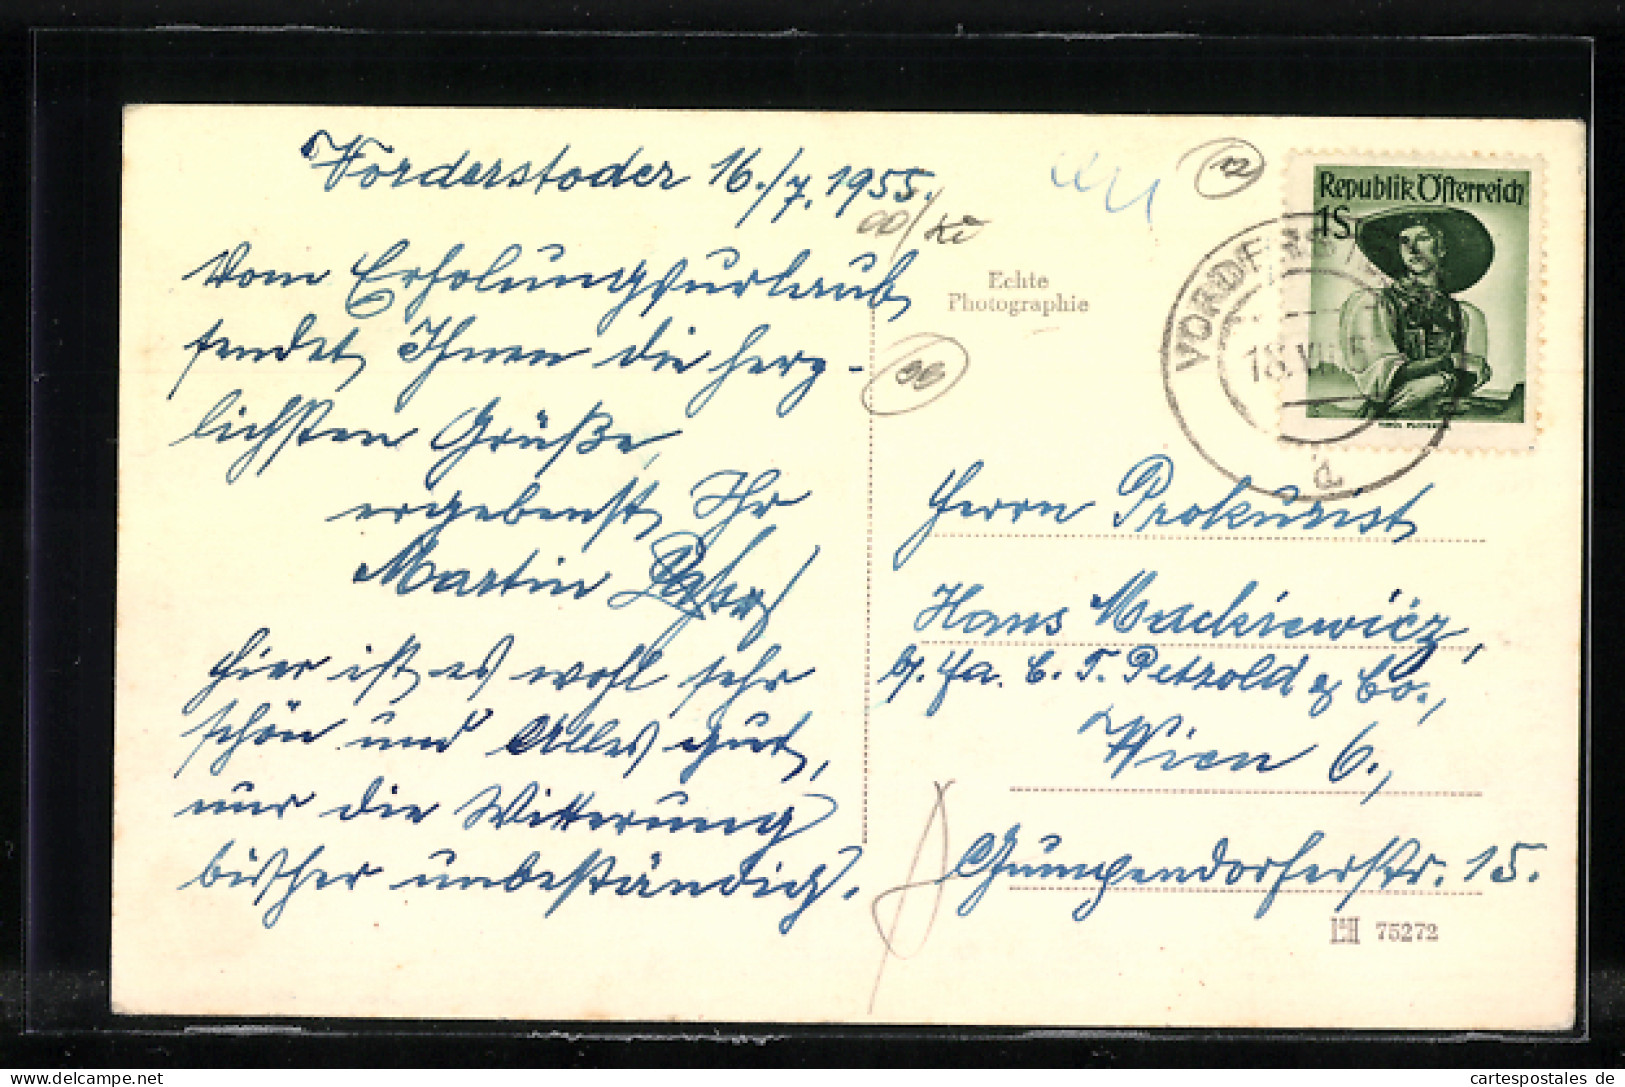 Vorderstoder 16./7. 1955.
Vom Erholungsurlaub
sendet Ihnen die herz-
lichsten Grüße,
ergebenst Ihr
Martin
Hier ist es wohl sehr
schön und Alles gut,
nur die Witterung
bisher unbeständig.
Echte
Photographie
12
Republik Österreich
1S
VORDERSTODER
18.VII.5
a
Herrn Prokurist
Hans Mackiewicz,
b/. Fa. C. T. Petzold & Co.,
Wien 6.,
Gumpendorferstr. 15.
75272
www.delcampe.net
cartespostales de